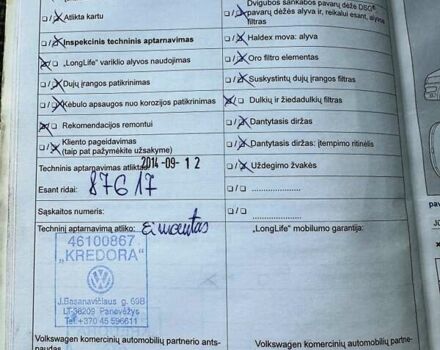 Atlikta kartu
Inspekcinis techninis aptarnavimas
„LongLife" variklio alyvos naudojimas
Dujų įrangos patikrinimas
Kėbulo apsaugos nuo korozijos patikrinimas
Rekomendacijos remontui
Kliento pageidavimas
(taip pat pažymėkite užsakyme)
Techninis aptarnavimas atliktas: 2014-09-12
Esant ridai: 87617
Sąskaitos numeris:
Techninį aptarnavimą atliko:
46100867
„KREDORA"
J.Basanavičiaus g. 69B
LT-36209 Panevėžys
Tel:+370 45 596611
Volkswagen komercinių automobilių partnerio ants-
naudas
Dvigubos sankabos pavarų dėžė DSG®
pavarų dėžės alyva ir, reikalui esant, alyvos
filtras
Haldex mova: alyva
Oro filtro elementas
Suskystintų dujų įrangos filtras
Dulkių ir žiedadulkių filtras
Dantytasis diržas
Dantytasis diržas: įtempimo ritinėlis
Uždegimo žvakės
„LongLife" mobilumo garantija:
Volkswagen komercinių automobilių partnerio